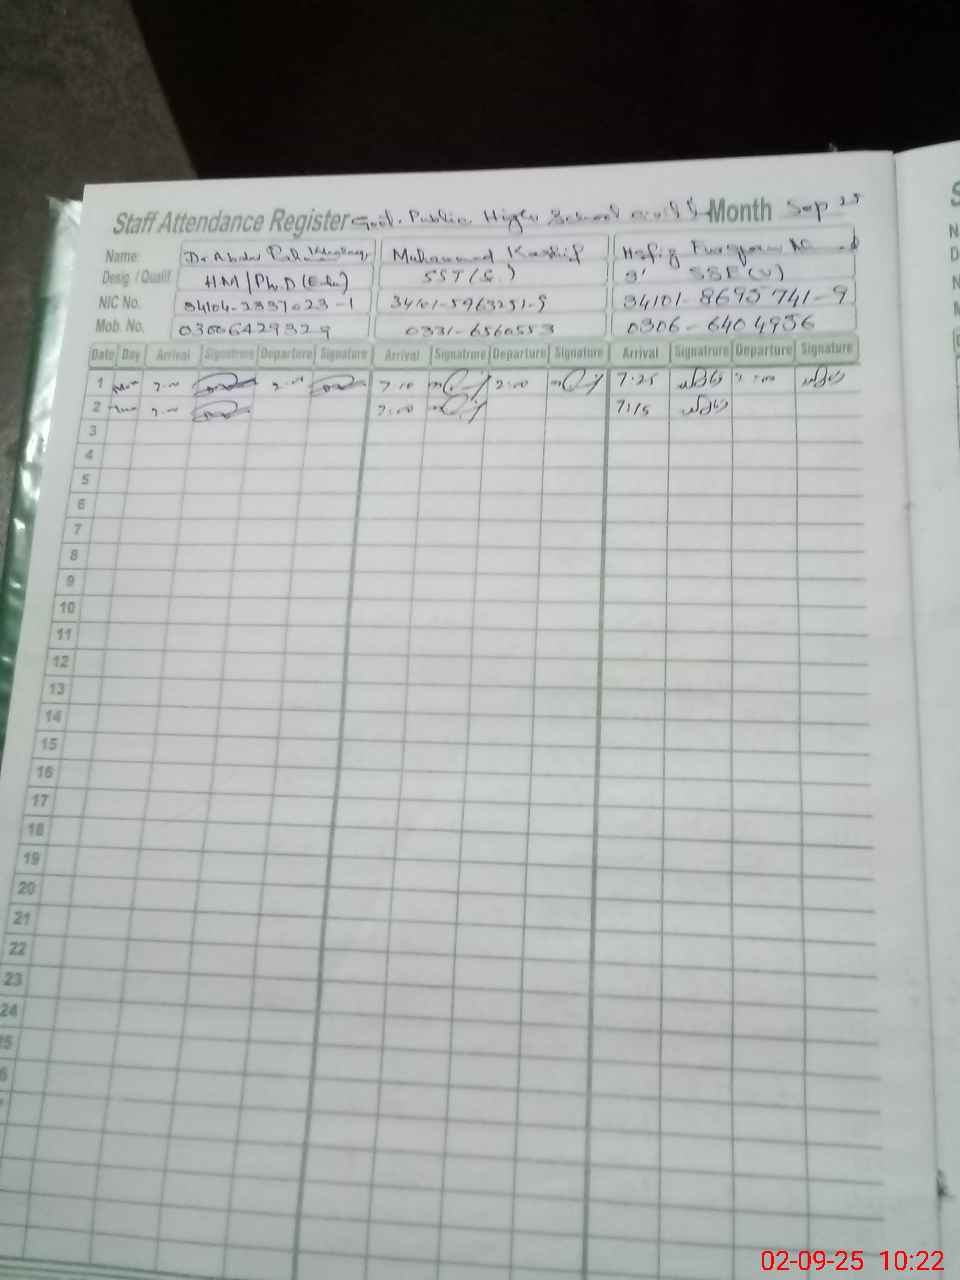 Staff Attendance Register Govt. Public High School Month Sep 25
Name: Dr Abdul Muhammad Kashif Hafiz Furqan
Desig. / Qualif. HM/Ph.D (Edu) SST(G.) SSE(V)
NIC No. 34104-2337023-1 34101-5963251-9 34101-8695741-9
Mob. No. 03006429329 0331-6560553 0306-6404956
Date Day Arrival Signatrure Departure Signature Arrival Signatrure Departure Signature Arrival Signatrure Departure Signature
1 7:00 2:00 7:10 2:00 7:25 2:00
2 7:00 7:00 7:15
3
4
5
6
7
8
9
10
11
12
13
14
15
16
17
18
19
20
21
22
23
24
02-09-25 10:22